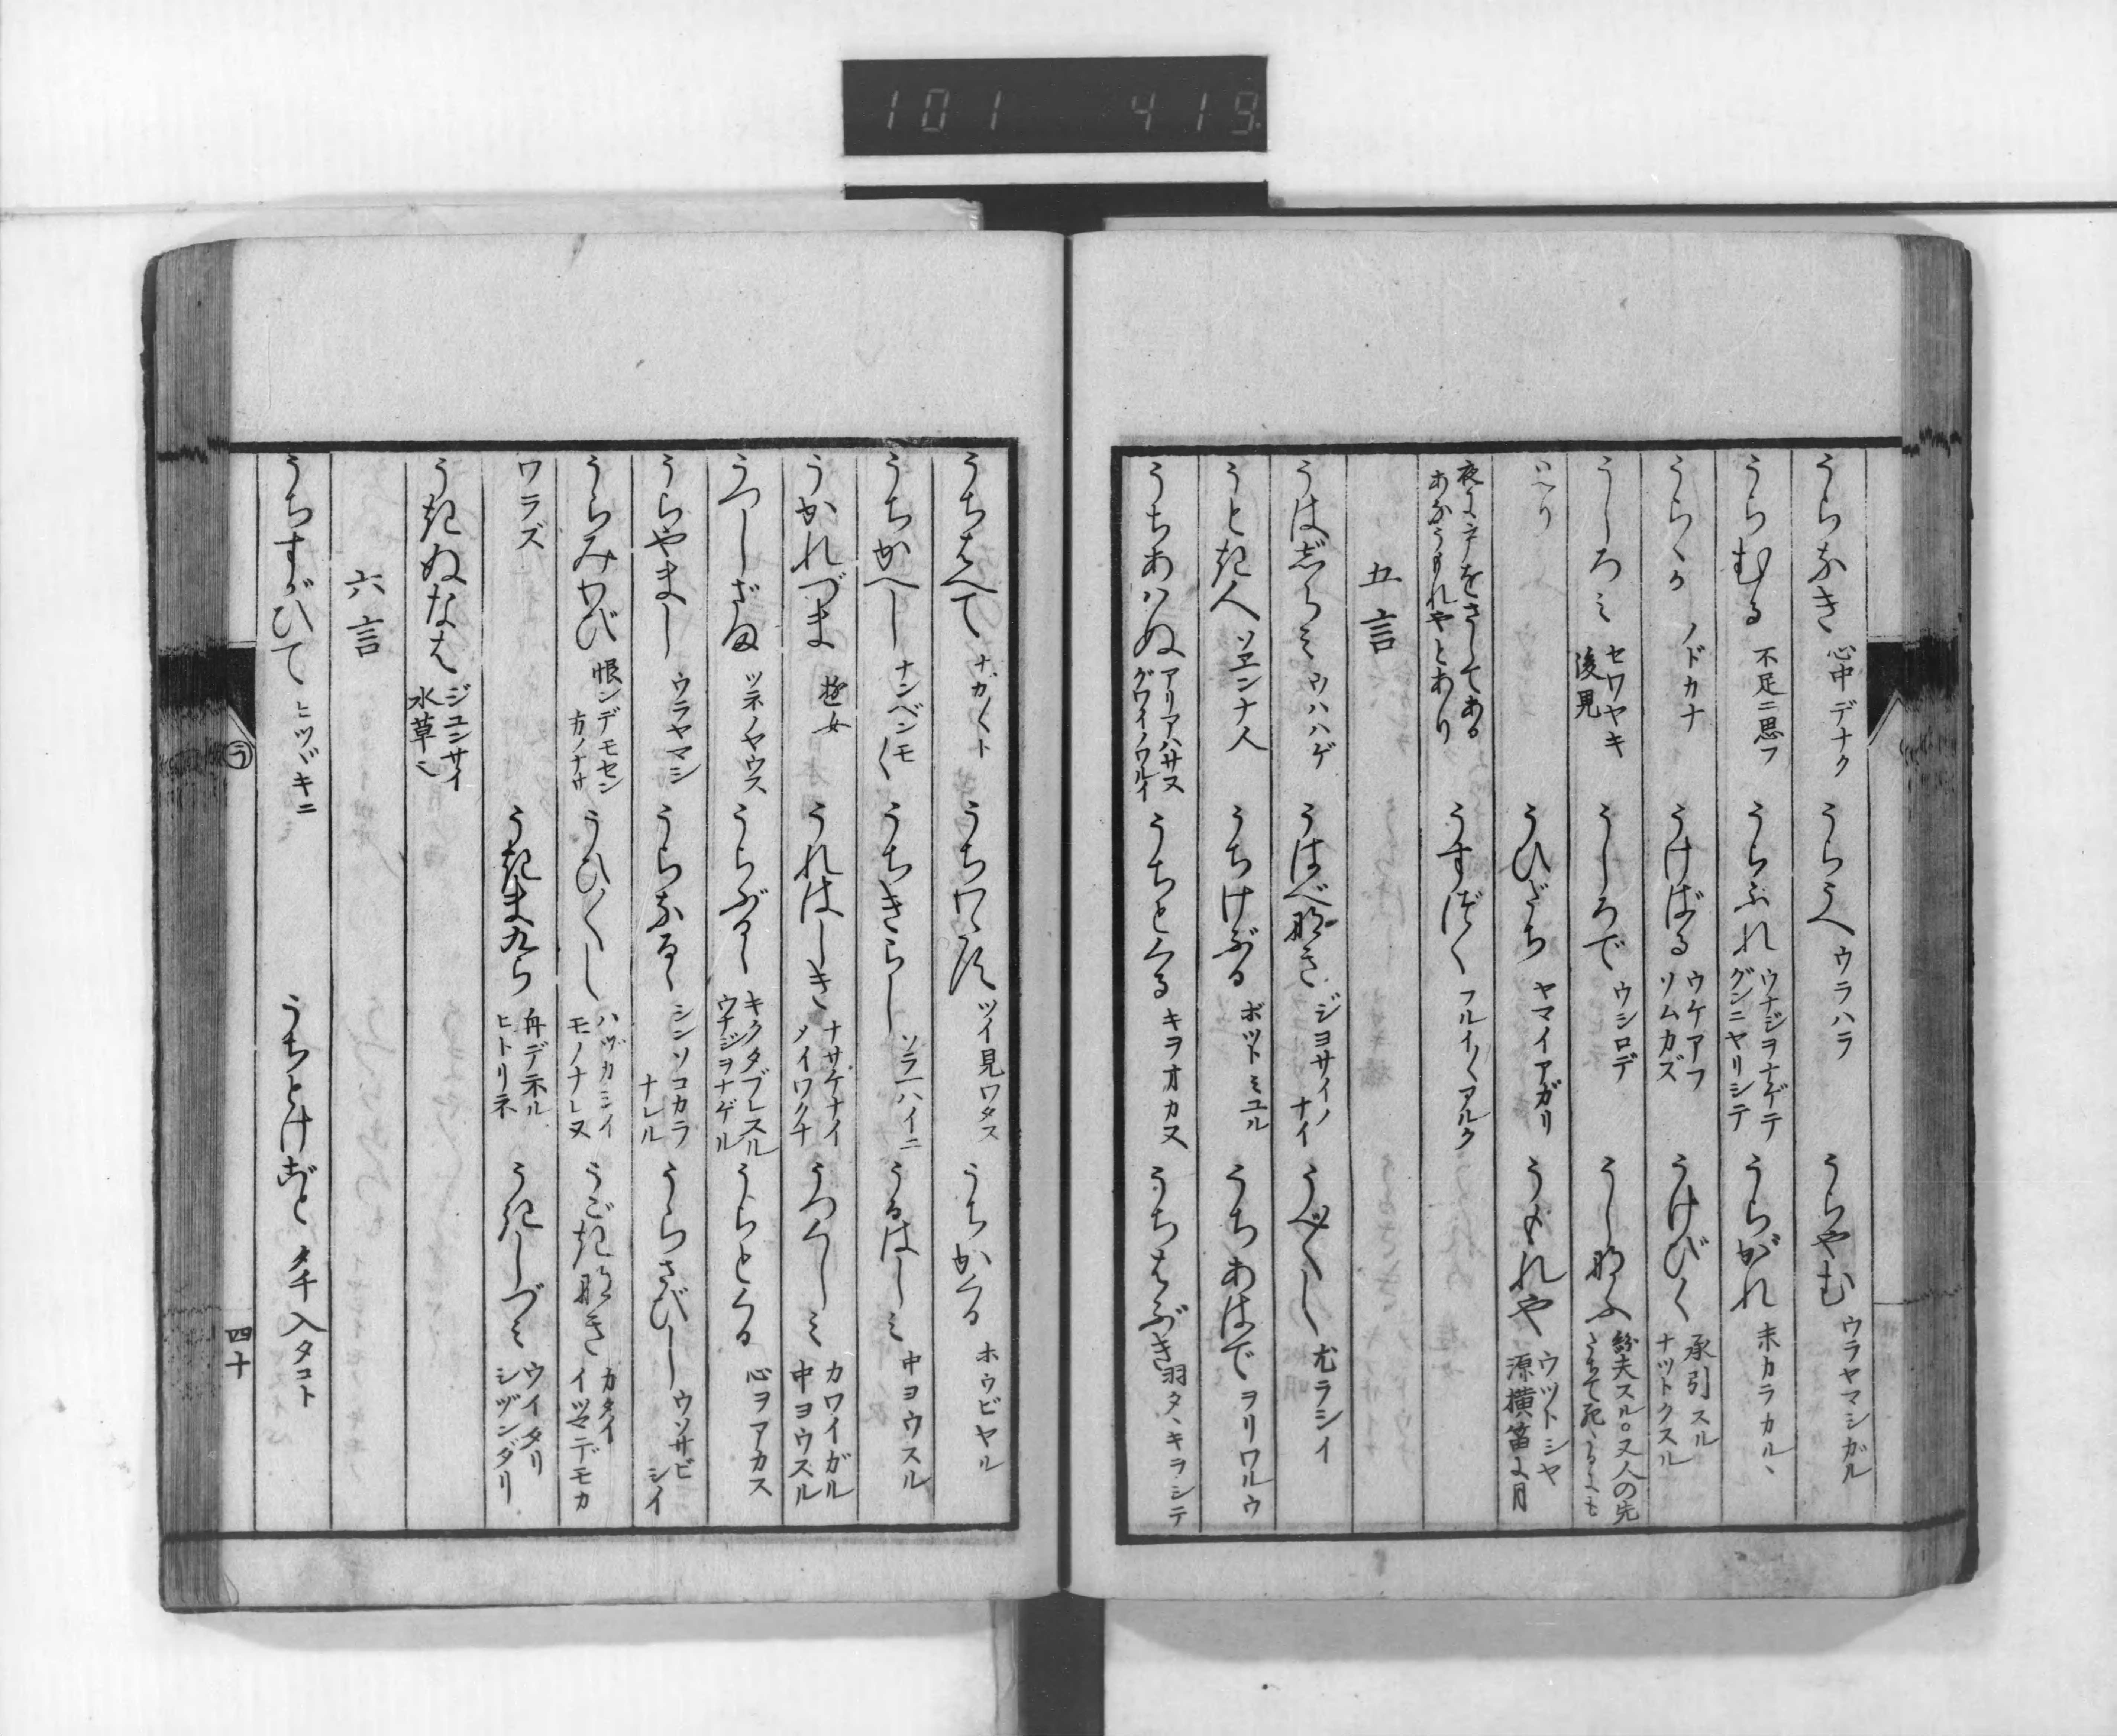 101 419
うらなき 心中デナク うらうへ ウラハラ うらやむ ウラヤマシガル
うらむる 不足ニ思フ うらぶれ ウナジヲナゲテ グンニヤリシテ うらがれ 末カラカルヽ
うらゝか ノドカナ うけばる ウケアフ ソムカズ うけびく 承引スル ナツトクスル
うしろミ セワヤキ 後見 うしろで ウシロデ うしなふ 紛失スル○又人の先
うひだち ヤマイアガリ うもれや ウツトシヤ 源横笛ニ月
夜に をさしてある あなうもれやとあり うすずく フルイ〳〵アルク
五言
うはじらミ ウハハゲ うはべなき ジヨサイノナイ うべ〳〵し 尤ラシイ
うとき人 ソヱンナ人 うちけぶる ボツトミユル うちあはで ヲリワルウ
うちあハぬ アリアハサヌ グワイノワルイ うちとくる キヲオカヌ うちはぶき 羽タヽキヲシテ
うちはへて ナガ〳〵ト うちわたす ツイ見ワタス うちかくる ホウビヤル
うちかへし ナンベンモ〳〵 うちきらし ソラ一ハイニ うるはしミ 中ヨウスル
うかれづま 遊女 うれはしき ナサケナイ ノイワクナ うつくしミ カワイガル 中ヨウスル
うつしざま ツネノヤウス うらぶるゝ キクタブレスル ウナジヲナゲル うらとくる 心ヲアカス
うらやまし ウラヤマシ うらなるゝ シンソコカラナレル うらさびし ウソサビシイ
うらみわび 恨ンデモセン方ノナサ うひ〳〵し ハヅカシイ モノナレヌ うごきなき カタイ イツマデモカ
ワラズ うきまくら 舟デネル ヒトリネ うきしづミ ウイタリ シヅンダリ
うきぬなは ジユンサイ 水草也
六言
うちすがひて ヒツヾキニ うちとけごと タチ入タコト
う
四十